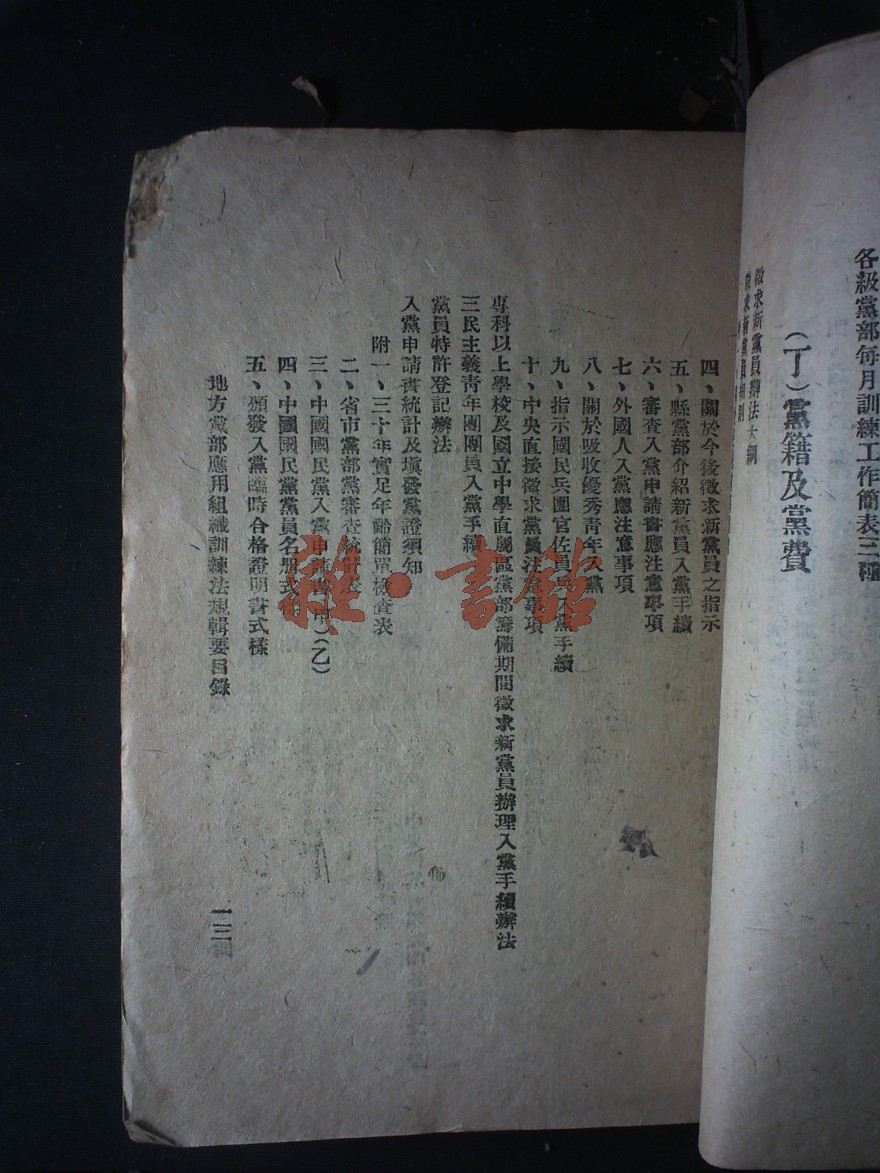 各級黨部每月訓練工作簡表三種
(丁)黨籍及黨費
徵求新黨員辦法大綱
徵求新黨員細則
四、關於今後徵求新黨員之指示
五、縣黨部介紹新黨員入黨手續
六、審查入黨申請書應注意事項
七、外國人入黨應注意事項
八、關於吸收優秀青年入黨
九、指示國民兵團官佐員入黨手續
十、中央直接徵求黨員注意事項
專科以上學校及國立中學直屬區黨部籌備期間徵求新黨員辦理入黨手續辦法
三民主義青年團團員入黨手續
黨員特許登記辦法
入黨申請書統計及塡發黨證須知
附一、三十年實足年齡簡單檢查表
二、省市黨部黨審查統計表
三、中國國民黨入黨申請書(甲)(乙)
四、中國國民黨黨員名册式樣
五、頒發入黨臨時合格證明書式樣
地方黨部應用組織訓練法規輯要目錄
一三
雜·書館